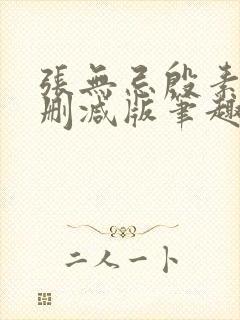 張無忌殷素
刪减版筆趣
二人一卜